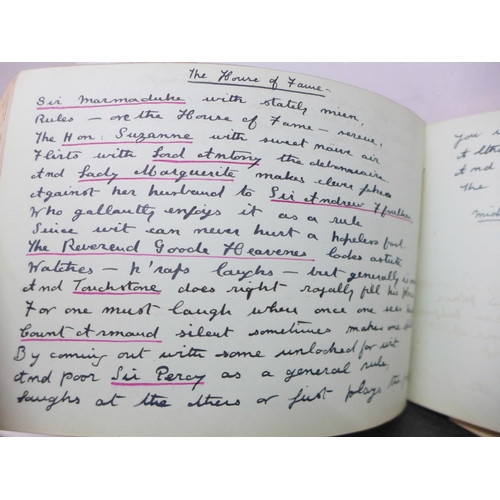 The House of Fame -
Sir Marmaduke with stately mien,
Rules - o'er the House of Fame - serene,
The Hon: Suzanne with sweet naive air
Flirts with Lord Antony the debonnaire
And Lady Marguerite makes clever
Against her husband to Sir Andrew Ffoulkes
Who gallantly enjoys it as a rule
Since wit can never hurt a hopeless fool.
The Reverend Goode Heavenes looks astute
Watches - p'raps laughs - but generally is
And Touchstone does right royally fill his
For one must laugh where once one sees
Count Armand silent sometimes makes one
By coming out with some unlooked for wit
And poor Sir Percy as a general rule,
Laughs at the others or just plays the
You
And
The